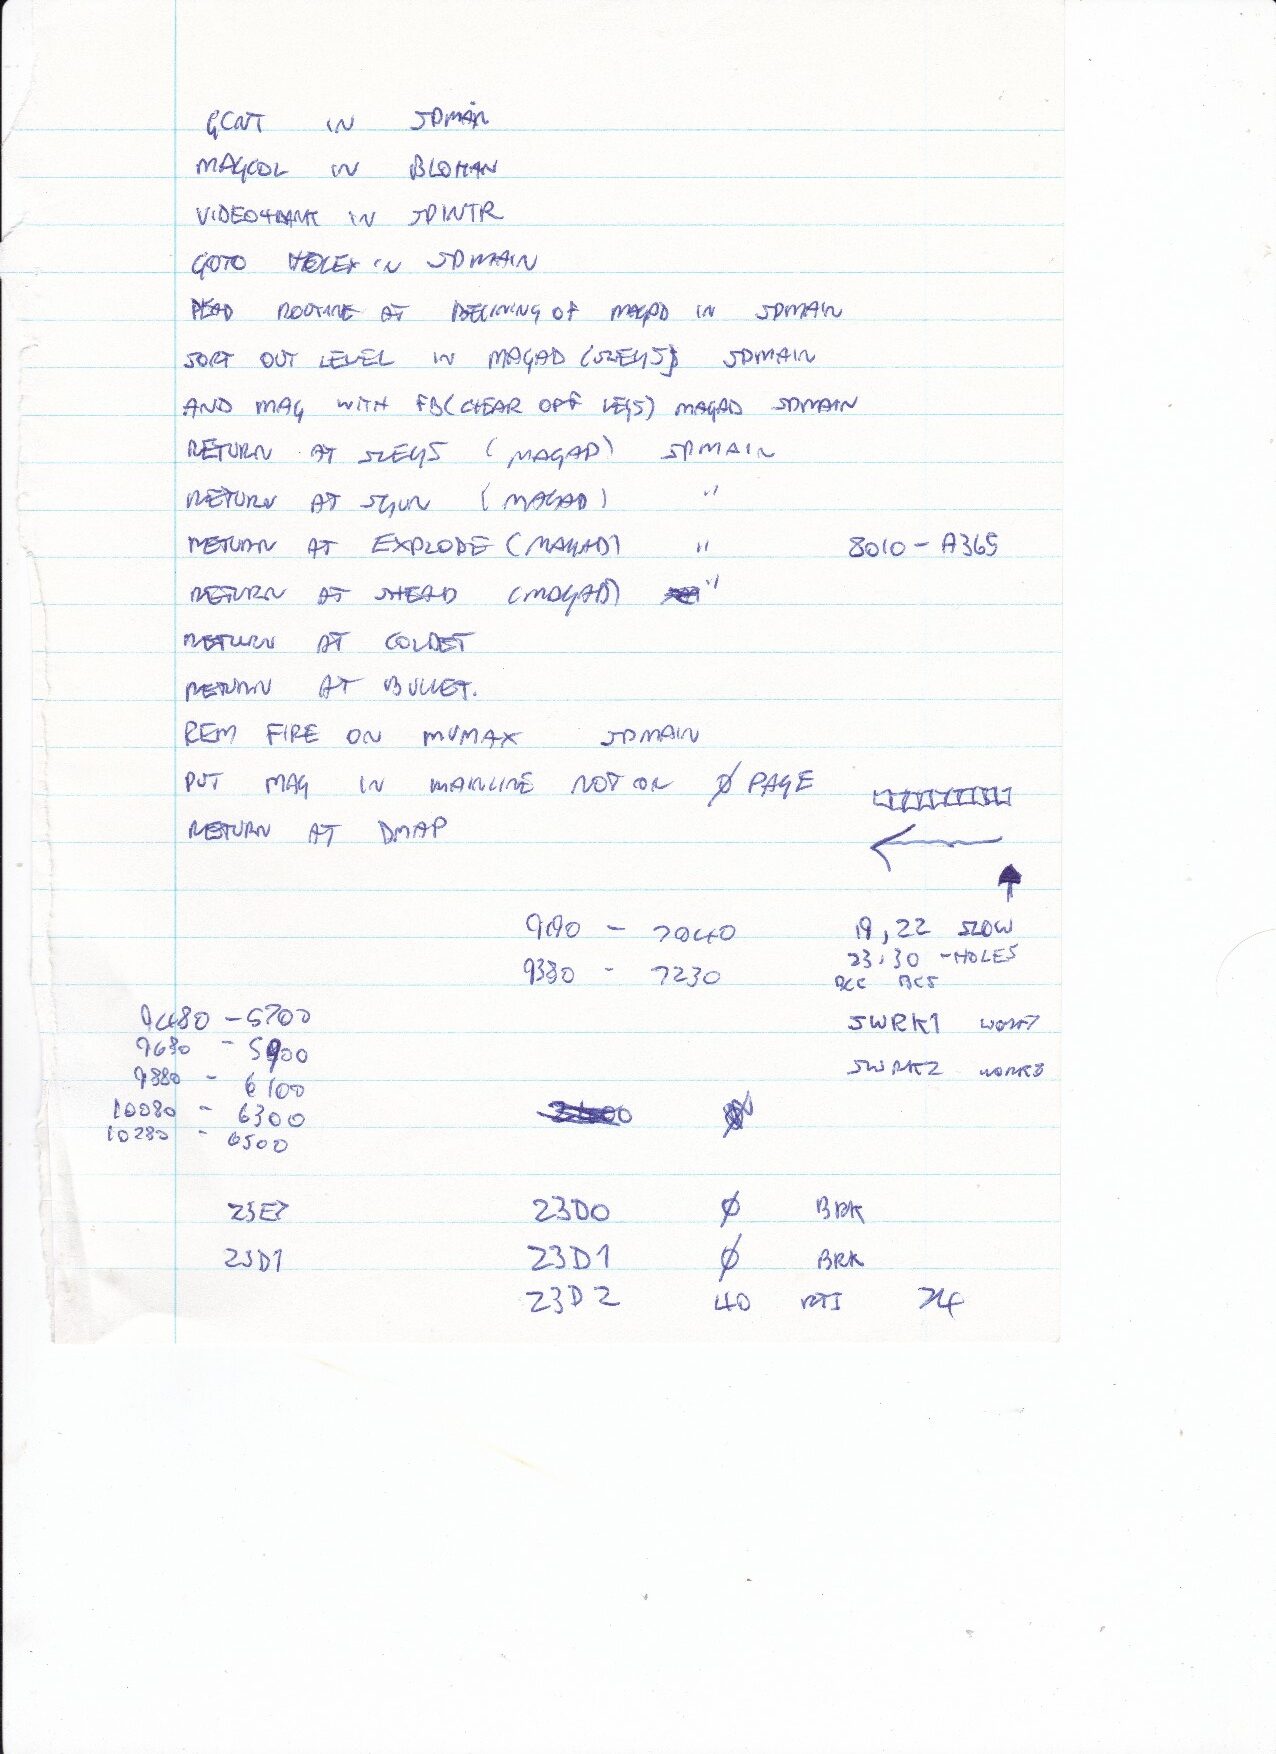 GCNT IN SDMAIN
MAGCOL IN BLDMAN
VIDEO+BANK IN SDINTR
GOTO HOLEX IN SDMAIN
READ ROUTINE AT BEGINING OF MAGAD IN SDMAIN
SORT OUT LEVEL IN MAGAD (SLEGS) SDMAIN
AND MAG WITH FB (CLEAR OFF LEGS) MAGAD SDMAIN
RETURN AT SLEGS (MAGAD) SDMAIN
RETURN AT SGUN (MAGAD) "
RETURN AT EXPLODE (MAGAD) " 8010 - A365
RETURN AT SHEAD (MAGAD) "
RETURN AT COLDET
RETURN AT BULLET.
REM FIRE ON MVMAX SDMAIN
PUT MAG IN MAINLINE NOT ON Ø PAGE
RETURN AT DMAP
9190 - 7040 19,22 SLOW
9380 - 7230 23,30 - HOLES
BCC BCS
9480 - 5700 SWRK1
9680 - 5900
9880 - 6100 SWRK2
10080 - 6300
10280 - 6500
23E7 23D0 Ø BRK
23D1 23D1 Ø BRK
23D2 40 RTI